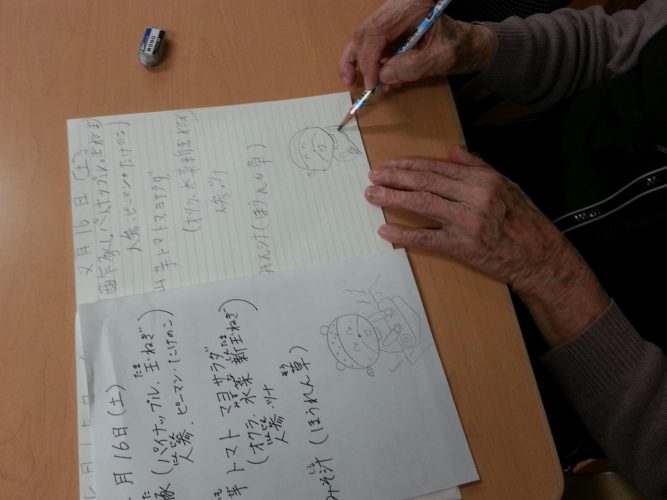 月16日(土)
パイナップル.玉ねぎ
人参.ピーマン.たけのこ)
山芋トマトマヨサラダ
(オクラ.水菜新玉ねぎ)
人参.ツナ
みそ汁(ほうれん草)
月16日(土)
豚(パイナップル.玉ねぎ
人参.ピーマン.たけのこ)
芋トマト マヨサラダ
(オクラ.水菜 新玉ねぎ)
人参.ツナ
みそ汁(ほうれん草)
MONO